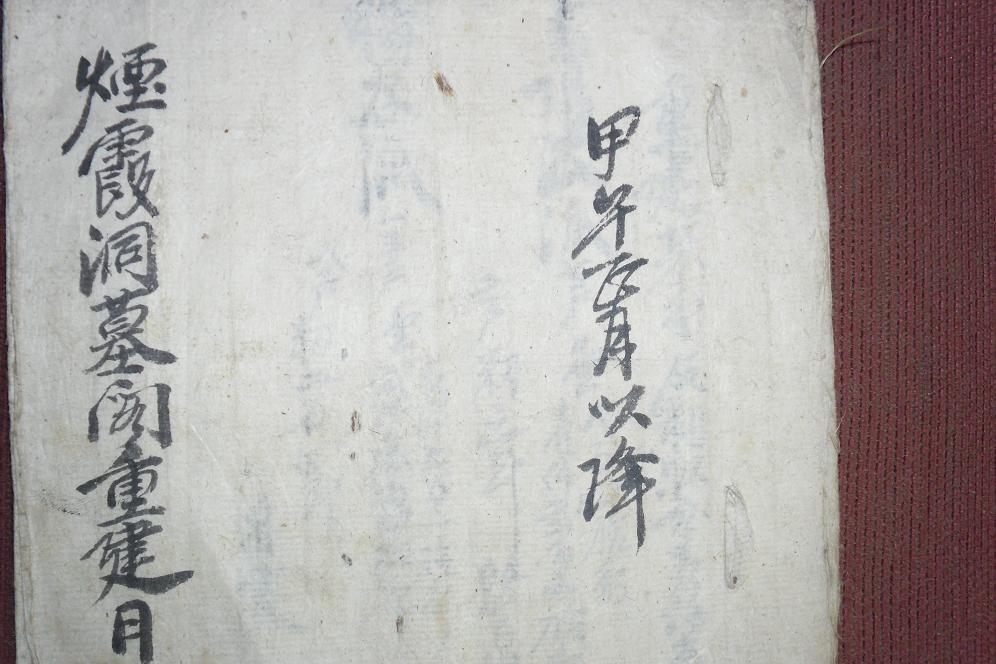 甲午正月以降
煙霞洞墓閣重建日